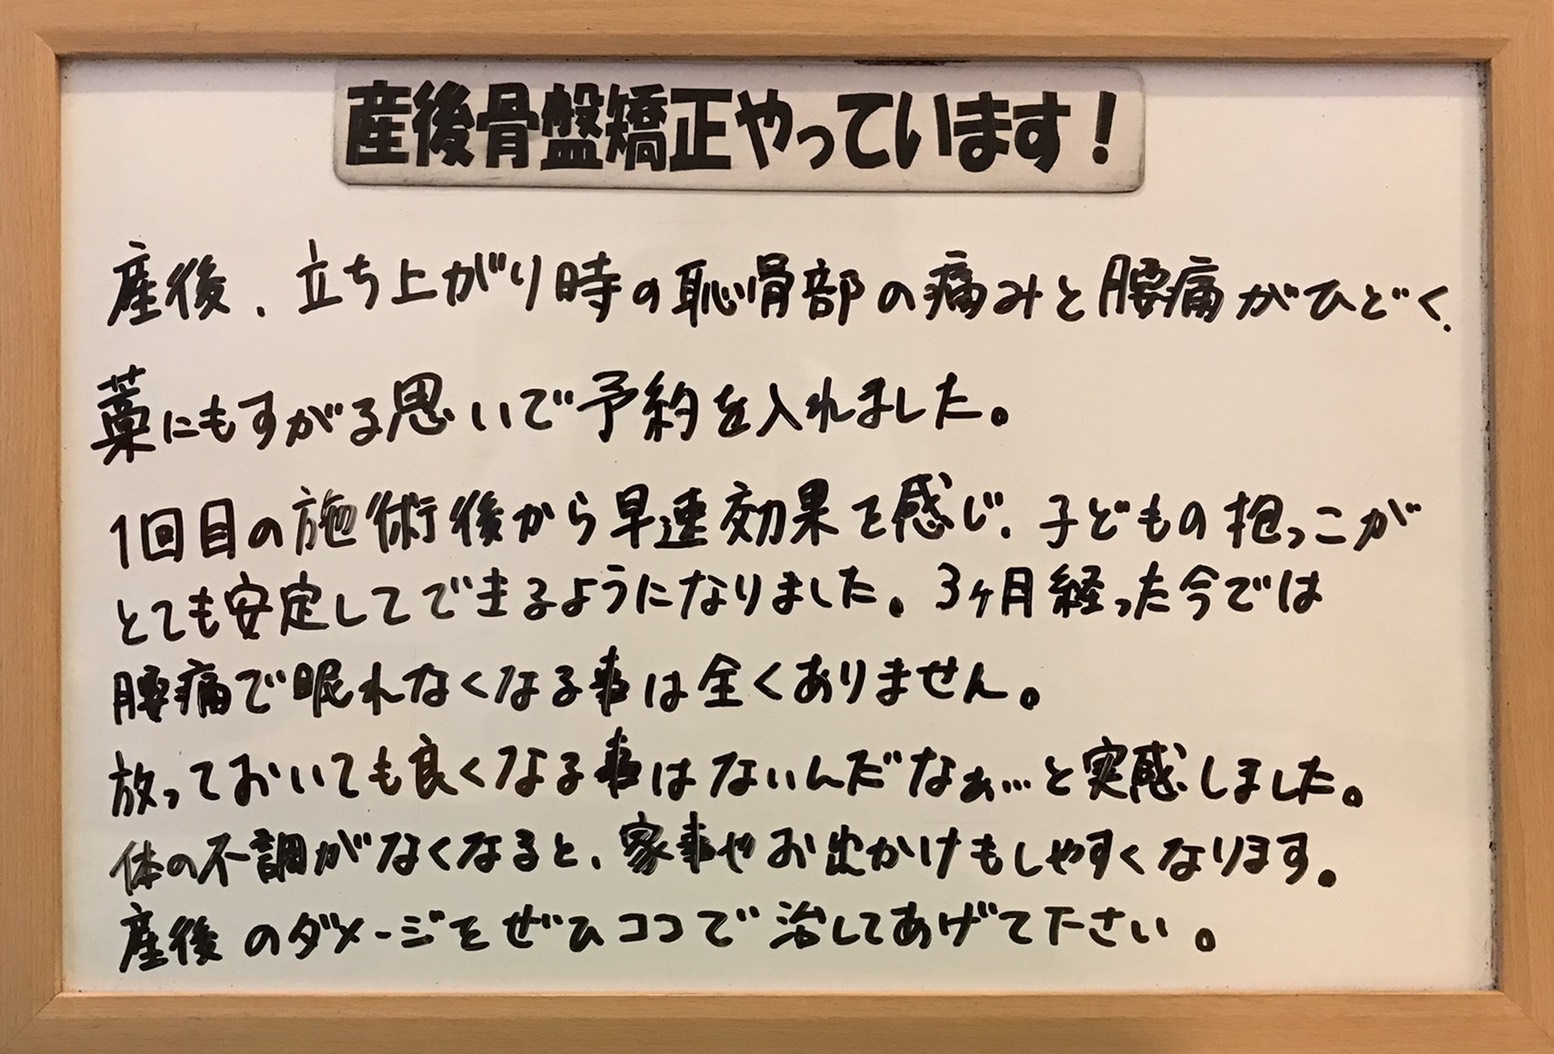 産後骨盤矯正やっています!
産後、立ち上がり時の恥骨部の痛みと腰痛がひどく、
藁にもすがる思いで予約を入れました。
1回目の施術後から早速効果を感じ、子どもの抱っこが
とても安定してできるようになりました。3ヶ月経った今では
腰痛で眠れなくなる事は全くありません。
放っておいても良くなる事はないんだなぁ…と実感しました。
体の不調がなくなると、家事やお出かけもしやすくなります。
産後のダメージをぜひココで治してあげて下さい。